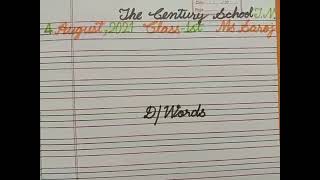 The Century School T.N
4 August, 2021 Class-1st Ms Saroj
D/Words